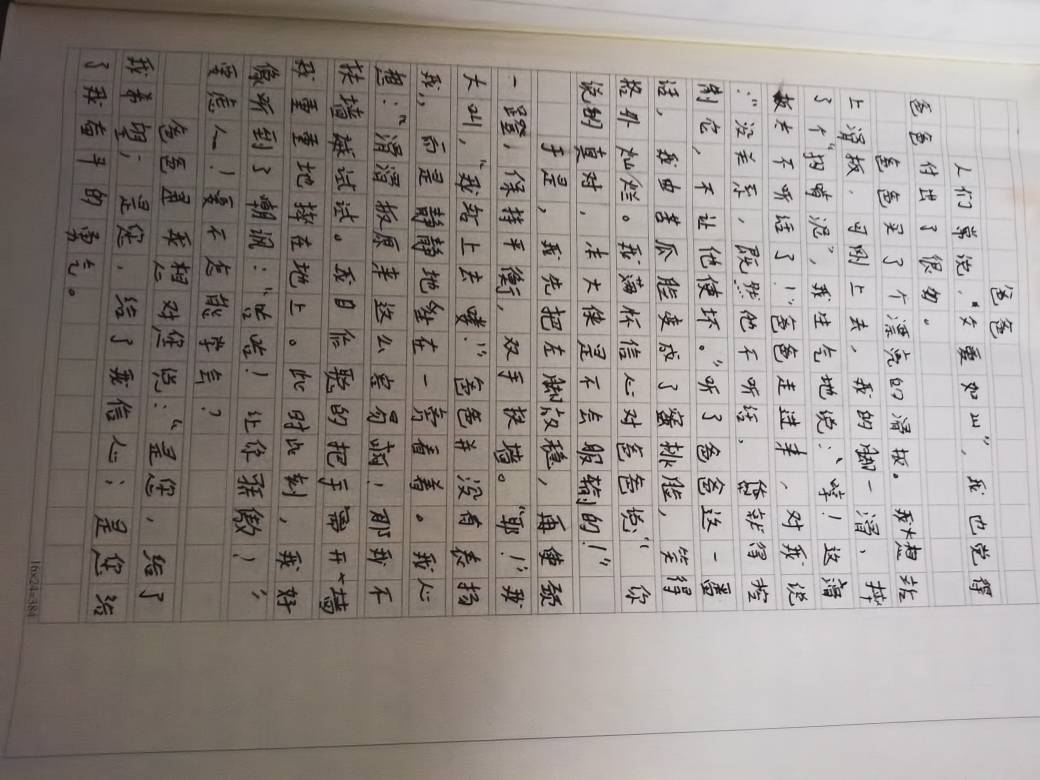 爸爸
人们常说,“父爱如山”,我也觉得
爸爸付出了很多。
爸爸买了个漂亮的滑板。我想站
上滑板,可刚上去,我的脚一滑,摔
了个“狗啃泥”,我生气地说:“哼!这滑
板太不听话了!”爸爸走过来,对我说
:“没关系,既然他不听话,您就得控
制它,不让他使坏。”听了爸爸这一番
话,我由苦瓜脸变成了蜜桃脸,笑得
格外灿烂。我满怀信心对爸爸说“你
说的真对,本大侠是不会服输的!”
于是,我先把左脚放稳,再使劲
一蹬,保持平衡,双手扶墙。“耶!”我
大叫,“我站上去喽!”爸爸并没有表扬
我,而是静静地站在一旁看着。我心
想:“滑滑板原来这么容易啊!那我不
扶墙试试。我自信的把手离开墙
我重重地摔在地上。此时此刻,我好
像听到了嘲讽:“哈哈!让你骄傲!”
爸爸是我想对您说:“是您,给了
我希望;是您,给了我信心;是您给
了我奋斗的勇气。
16×24=384